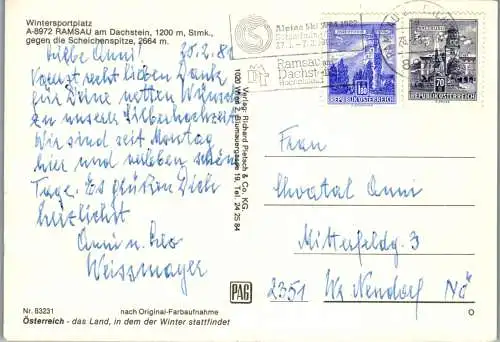 Wintersportplatz
A-8972 RAMSAU am Dachstein, 1200 m, Stmk.,
gegen die Scheichenspitze, 2664 m.
Liebe Anni! 25.2.81
Vorerst recht lieben Dank
für Deine netten Wünsche
zu unserer Silberhochzeit
Wir sind seit Montag
hier und verleben schöne
Tage. Es grüßen Dich
herzlichst
Anni u. Leo
Weissmayer
Nr. 83231 nach Original-Farbaufnahme
Österreich - das Land, in dem der Winter stattfindet
Verlag: Richard Pietsch & Co. KG.
1020 Wien 2, Blumauergasse 19, Tel. 24 25 84
PAG
Alpine Ski 1982
Ramsau am
Dachstein
1.80
REPUBLIK ÖSTERREICH
70
REPUBLIK ÖSTERREICH
Frau
Chvatal Anni
Mitterfeldg. 3
2351 Wr. Neudorf NÖ
O